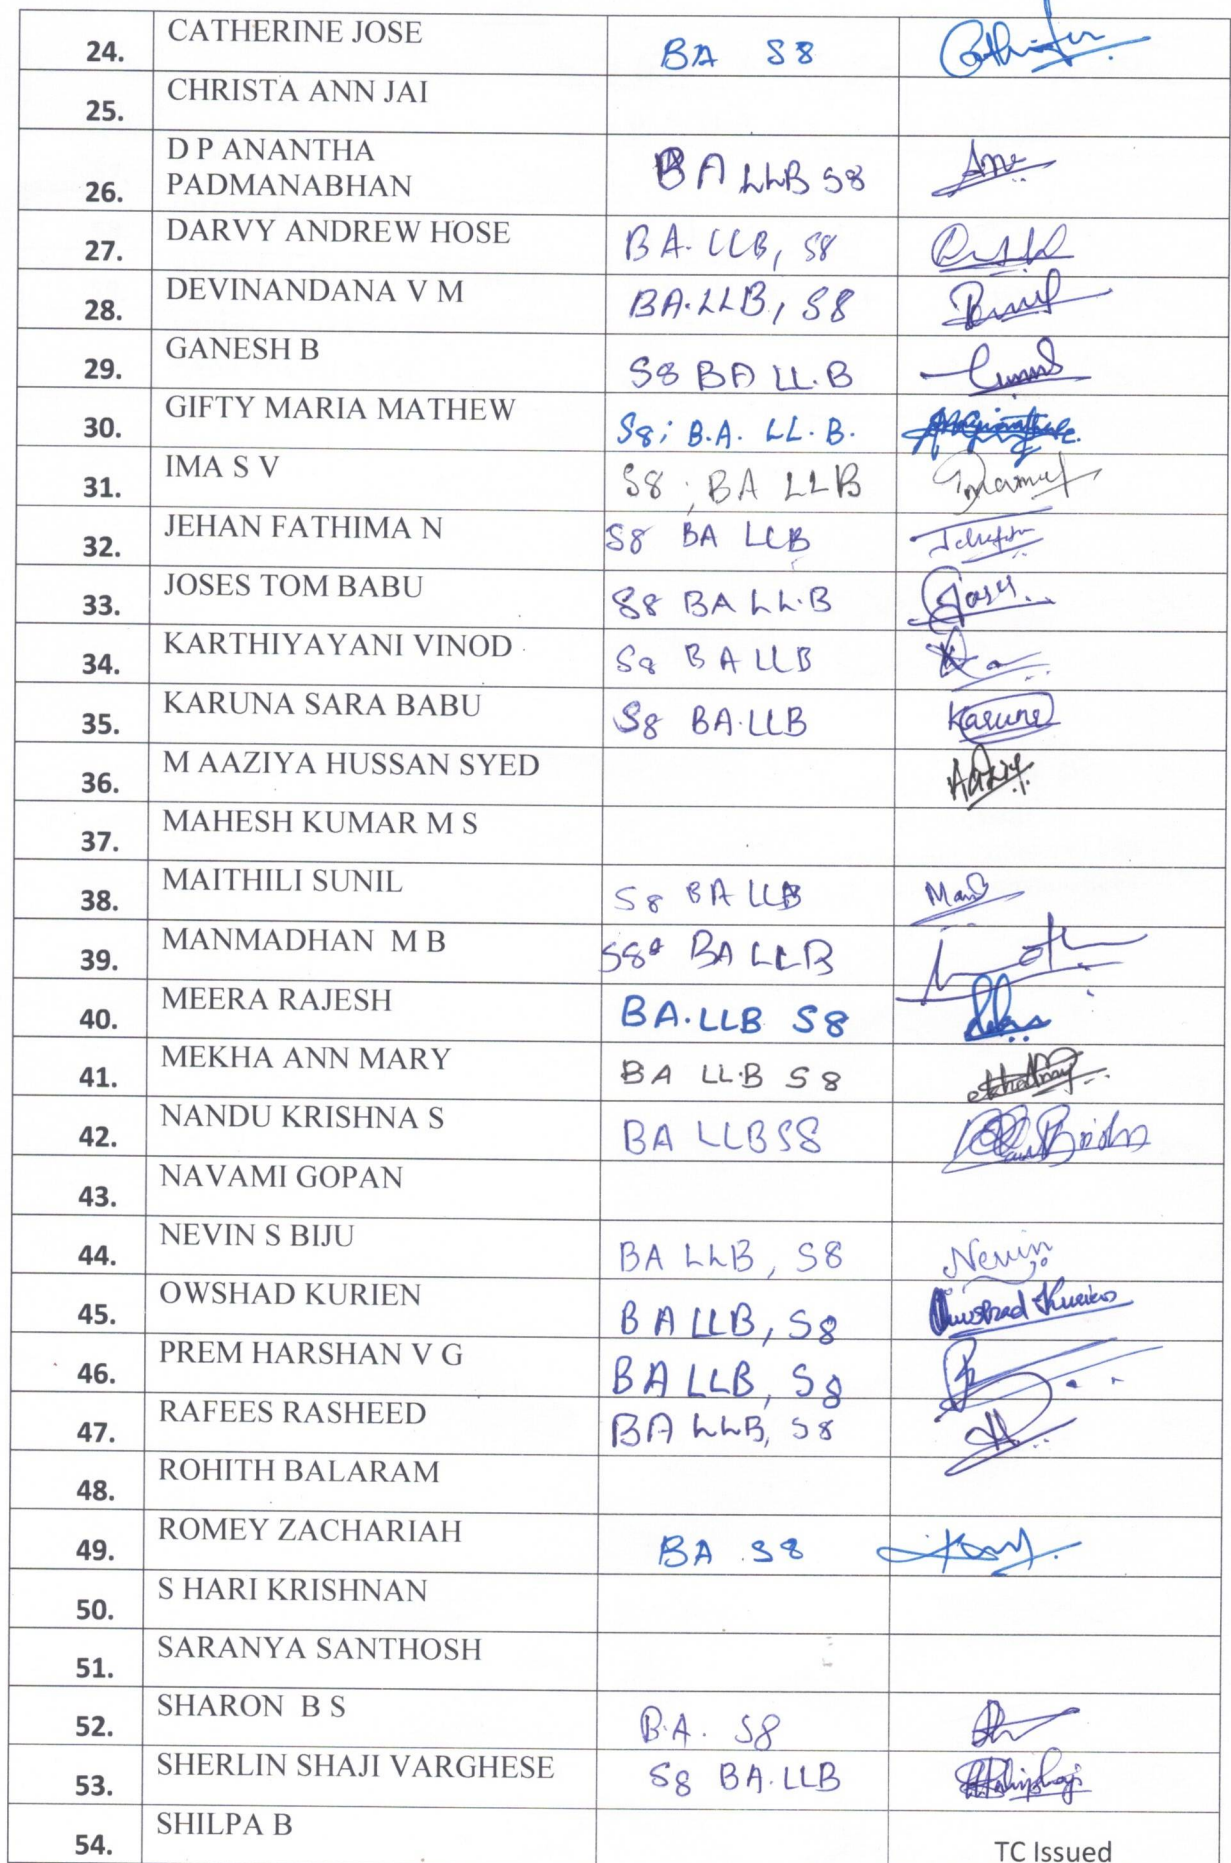 24. CATHERINE JOSE BA S8
25. CHRISTA ANN JAI
26. D P ANANTHA
PADMANABHAN BA LLB S8
27. DARVY ANDREW HOSE BA. LLB, S8
28. DEVINANDANA V M BA.LLB, S8
29. GANESH B S8 BA LL.B
30. GIFTY MARIA MATHEW S8; B.A. LL.B.
31. IMA S V S8; BA LLB
32. JEHAN FATHIMA N S8 BA LLB
33. JOSES TOM BABU S8 BA LL.B Joses
34. KARTHIYAYANI VINOD S8 BA LLB
35. KARUNA SARA BABU S8 BA.LLB Karuna
36. M AAZIYA HUSSAN SYED
37. MAHESH KUMAR M S
38. MAITHILI SUNIL S8 BA LLB
39. MANMADHAN M B S8 BA LLB
40. MEERA RAJESH BA.LLB S8
41. MEKHA ANN MARY BA LL.B S8
42. NANDU KRISHNA S BA LLB S8
43. NAVAMI GOPAN
44. NEVIN S BIJU BA LLB, S8 Nevin
45. OWSHAD KURIEN BA LLB, S8 Owshad Kurien
46. PREM HARSHAN V G BA LLB, S8
47. RAFEES RASHEED BA LLB, S8
48. ROHITH BALARAM
49. ROMEY ZACHARIAH BA S8
50. S HARI KRISHNAN
51. SARANYA SANTHOSH
52. SHARON B S B.A. S8
53. SHERLIN SHAJI VARGHESE S8 BA.LLB
54. SHILPA B TC Issued